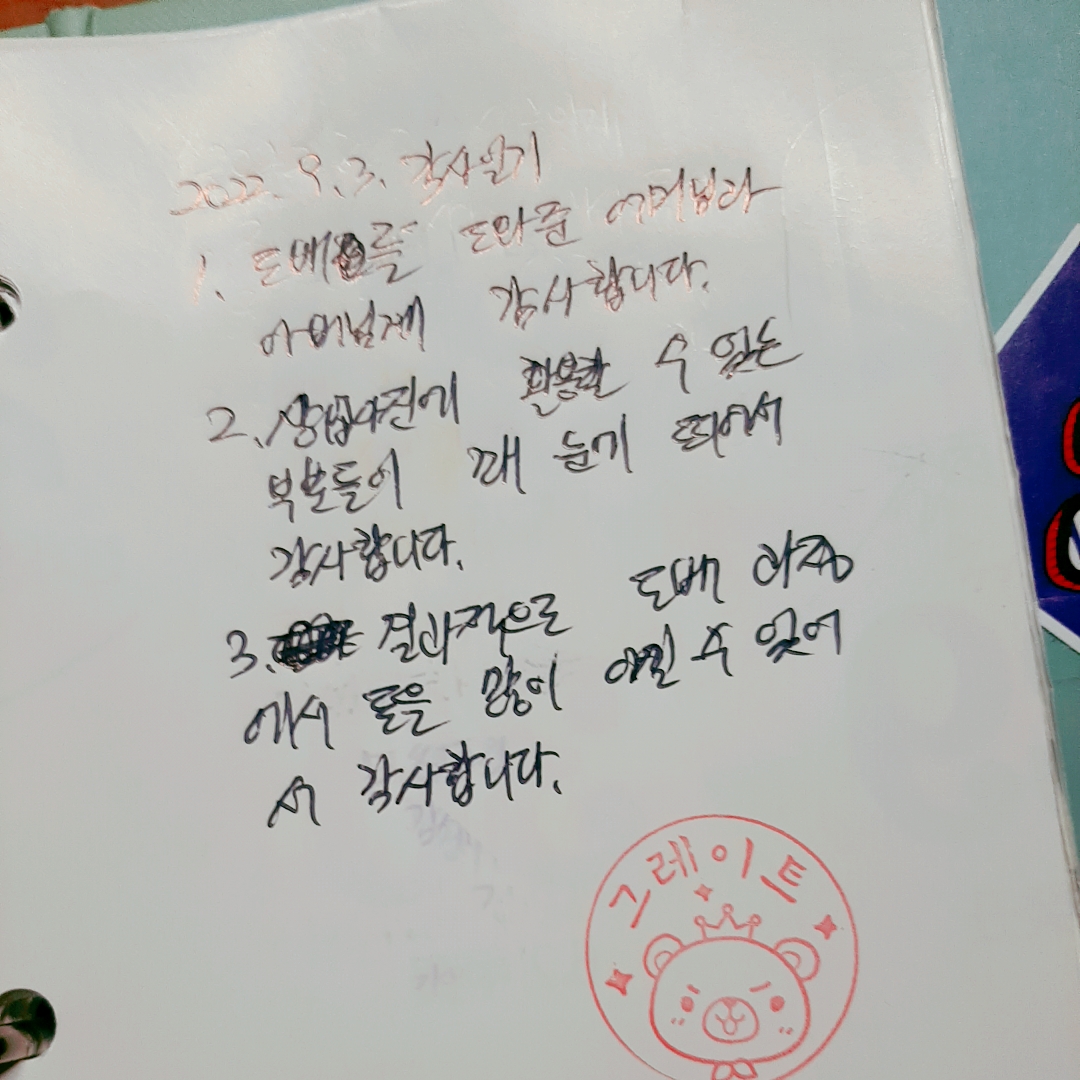 2022. 9. 3. 감사일기
1. 도배를 도와준 어머님과
아버님께 감사합니다.
2. 활용할 수 있는
부분들이 꽤 눈에 띄어서
감사합니다.
3. 결과적으로 도배 과정
에서 돈을 많이 아낄 수 있어
서 감사합니다.
그레이트